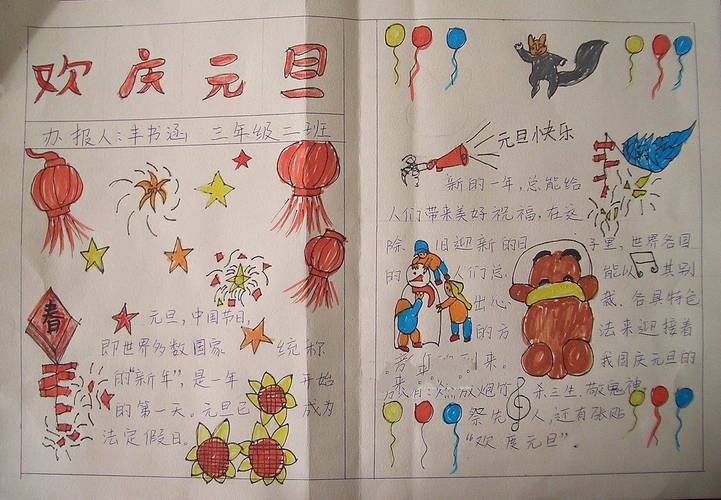 欢庆元旦
办报人:丰书涵 三年级二班
春
元旦,中国节日,
即世界多数国家 统称
的“新年”,是一年 开始
的第一天。元旦已 成为
法定假日。
元旦快乐
新的一年,总能给
人们带来美好祝福,在这
除 旧迎新的日 子里,世界各国
的 人们总 能以 其别
出心 裁、各具特色
的方 法来迎接着
来。 我国庆元旦的
有:燃放炮竹 杀三生、敬鬼神
祭先 人,还有张贴
“欢度元旦”。